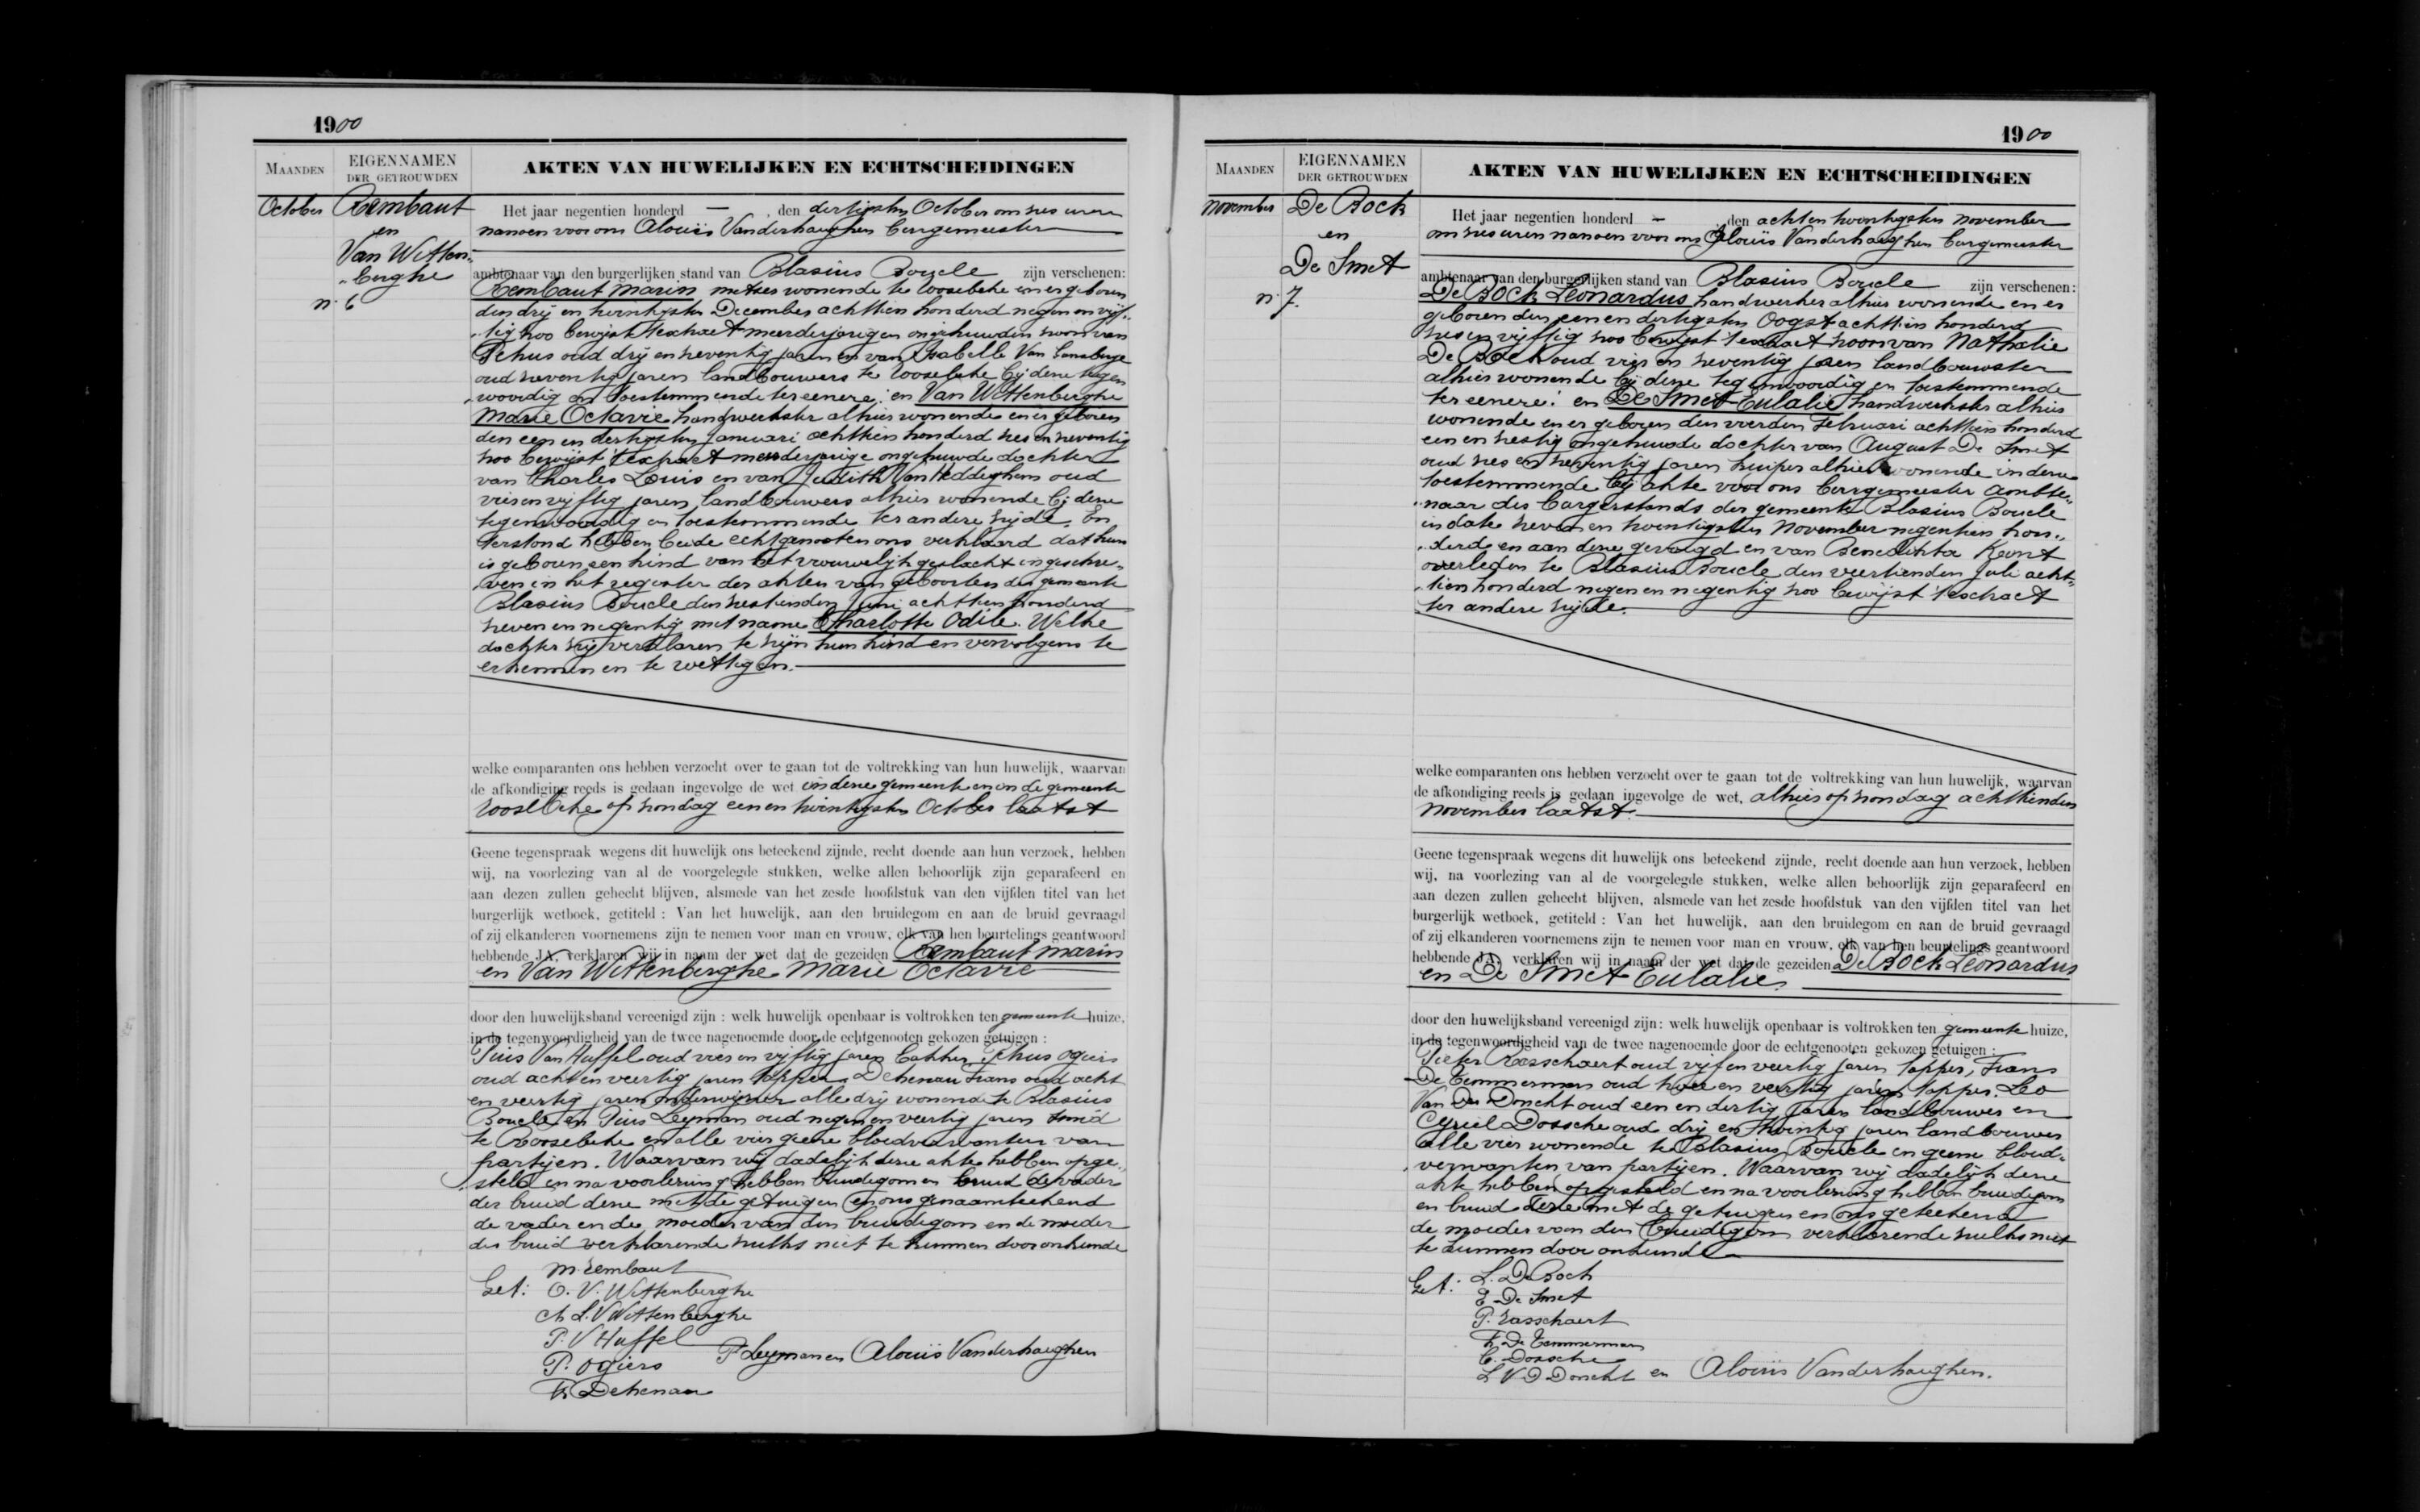 1900
MAANDEN
EIGENNAMEN
DER GETROUWDEN
AKTEN VAN HUWELIJKEN EN ECHTSCHEIDINGEN
October
Rembaut
en
Van Witten„
„berghe
n. 6
Het jaar negentien honderd — , den dertigsten October om zes uren
nanoen voor ons Aloviis Vanderhaeghen burgemeester
ambtenaar van den burgerlijken stand van Blasius Boucle zijn verschenen:
Rembaut Marin metser wonende te Roosebeke en er geboren
den drij en twintigsten December achttien honderd negen en vijf„
„tig zoo bewijst t'extract meerderjarigen ongehuwden zoon van
Petrus oud drij en zeventig jaren en van Isabelle Van
oud zeventig jaren landbouwers te Roosebeke bij deze tegen
„woordig en toestemmende ter eenere: en Van Wittenberghe
Marie Octavie handwerkster alhier wonende en er geboren
den een en dertigsten januari achttien honderd zes en zeventig
zoo bewijst t'extract meerderjarige ongehuwde dochter
van Charles Louis en van Judith Van Heddeghem oud
vier en vijftig jaren landbouwers alhier wonende bij deze
tegenwoordig en toestemmende ter andere zijde. En
terstond hebben beide echtgenooten ons verklaard dat hun
is geboren een kind van het vrouwelijk geslacht ingeschre„
„ven in het register der akten van geboorten der gemeente
Blasius Boucle den zestienden juni achttien honderd
zeven en negentig met name Charlotte Odile. Welke
dochter zij verklaren te zijn hun kind en vervolgens te
erkennen en te wettigen.
welke comparanten ons hebben verzocht over te gaan tot de voltrekking van hun huwelijk, waarvan
de afkondiging reeds is gedaan ingevolge de wet in deze gemeente en in de gemeente
Roosebeke op zondag een en twintigsten October laatst
Geene tegenspraak wegens dit huwelijk ons beteekend zijnde, recht doende aan hun verzoek, hebben
wij, na voorlezing van al de voorgelegde stukken, welke allen behoorlijk zijn geparafeerd en
aan dezen zullen gehecht blijven, alsmede van het zesde hoofdstuk van den vijfden titel van het
burgerlijk wetboek, getiteld : Van het huwelijk, aan den bruidegom en aan de bruid gevraagd
of zij elkanderen voornemens zijn te nemen voor man en vrouw, elk van hen beurtelings geantwoord
hebbende JA, verklaren wij in naam der wet dat de gezeiden Rembaut Marin
en Van Wittenberghe Marie Octavie
door den huwelijksband vereenigd zijn : welk huwelijk openbaar is voltrokken ten gemeente huize,
in de tegenwoordigheid van de twee nagenoemde door de echtgenooten gekozen getuigen :
Pius Van Huffel oud vier en vijftig jaren bakker, Petrus Ogiers
oud acht en veertig jaren tapper Dehenau Frans oud acht
en veertig jaren onderwijzer alle drij wonende te Blasius
Boucle en Pius Leyman oud negen en veertig jaren smid
te Roosebeke en alle vier geene bloedverwanten van
partijen. Waarvan wij dadelijk deze akte hebben opge„
„steld en na voorlezing hebben bruidegom en bruid de vader
der bruid deze met de getuigen en ons genaamteekend
de vader en de moeder van den bruidegom en de moeder
der bruid verklarende zulks niet te kunnen door onkunde
Get: M. Rembaut
O. V. Wittenberghe
Ch L. V Wittenberghe
P. V Huffel
P. Ogiers
Fr. Dehenau
P Leyman en Aloviis Vanderhaeghen
1900
MAANDEN
EIGENNAMEN
DER GETROUWDEN
AKTEN VAN HUWELIJKEN EN ECHTSCHEIDINGEN
November
De Bock
en
De Smet
n. 7.
Het jaar negentien honderd — , den achten twintigsten November
om zes uren nanoen voor ons Aloviis Vanderhaeghen burgemeester
ambtenaar van den burgerlijken stand van Blasius Boucle zijn verschenen:
De Bock Leonardus handwerker alhier wonende en er
geboren den een en dertigsten Oogst achttien honderd
zes en vijftig zoo bewijst t'extract zoon van Nathalie
De Bock oud vier en zeventig jaren landbouwster
alhier wonende bij deze tegenwoordig en toestemmende
ter eenere: en De Smet Eulalie handwerkster alhier
wonende en er geboren den vierden Februari achttien honderd
een en zestig ongehuwde dochter van August De Smet
oud zes en zeventig jaren kuiper alhier wonende in deze
toestemmende bij akte voor ons burgemeester ambte„
„naar des burgerstands der gemeente Blasius Boucle
in date zeven en twintigsten November negentien hon„
„derd en aan deze gevoegd en van Benedikta Keont
overleden te Blasius Boucle den veertienden juli acht„
„tien honderd negen en negentig zoo bewijst t'extract
ter andere zijde.
welke comparanten ons hebben verzocht over te gaan tot de voltrekking van hun huwelijk, waarvan
de afkondiging reeds is gedaan ingevolge de wet, alhier op zondag achttienden
November laatst.
Geene tegenspraak wegens dit huwelijk ons beteekend zijnde, recht doende aan hun verzoek, hebben
wij, na voorlezing van al de voorgelegde stukken, welke allen behoorlijk zijn geparafeerd en
aan dezen zullen gehecht blijven, alsmede van het zesde hoofdstuk van den vijfden titel van het
burgerlijk wetboek, getiteld : Van het huwelijk, aan den bruidegom en aan de bruid gevraagd
of zij elkanderen voornemens zijn te nemen voor man en vrouw, elk van hen beurtelings geantwoord
hebbende JA, verklaren wij in naam der wet dat de gezeiden De Bock Leonardus
en De Smet Eulalie
door den huwelijksband vereenigd zijn : welk huwelijk openbaar is voltrokken ten gemeente huize,
in de tegenwoordigheid van de twee nagenoemde door de echtgenooten gekozen getuigen :
Pieter Rasschaert oud vijf en veertig jaren tapper, Frans
De Temmerman oud twee en veertig jaren tapper, Leo
Van Der Donckt oud een en dertig jaren landbouwer en
Cyriel Dossche oud drij en twintig jaren landbouwer
alle vier wonende te Blasius Boucle en geene bloed„
„verwanten van partijen. Waarvan wij dadelijk deze
akte hebben opgesteld en na voorlezing hebben bruidegom
en bruid deze met de getuigen en ons geteekend
de moeder van den bruidegom verklarende zulks niet
te kunnen door onkunde
Get: L. De Bock
E De Smet
P. Rasschaert
Fr. De Temmerman
C. Dossche
L V D Donckt en Aloviis Vanderhaeghen.